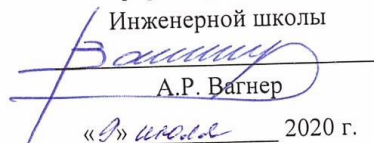 Инженерной школы
А.Р. Вагнер
«9» июля 2020 г.